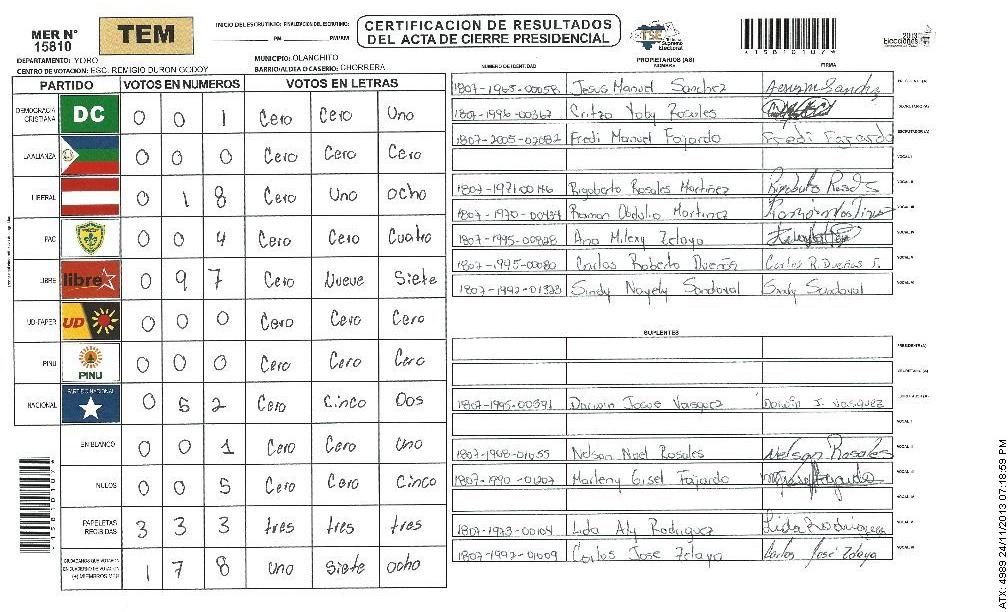 MER N° 15810
TEM
INICIO DEL ESCRUTINIO: FINALIZACION DEL ESCRUTINIO:
PM PM/AM
CERTIFICACION DE RESULTADOS
DEL ACTA DE CIERRE PRESIDENCIAL
TSE Tribunal Supremo Electoral
2013 Elecciones
DEPARTAMENTO: YORO
MUNICIPIO: OLANCHITO
CENTRO DE VOTACION: ESC. REMIGIO DURON GODOY
BARRIO/ALDEA O CASERIO: CHORRERA
PARTIDO VOTOS EN NUMEROS VOTOS EN LETRAS
DEMOCRACIA CRISTIANA DC 0 0 1 Cero Cero Uno
LA ALIANZA 0 0 0 Cero Cero Cero
LIBERAL 0 1 8 Cero Uno ocho
PAC 0 0 4 Cero Cero Cuatro
LIBRE libre 0 9 7 Cero Nueve Siete
UD-FAPER UD 0 0 0 Cero Cero Cero
PINU PINU 0 0 0 Cero Cero Cero
NACIONAL PARTIDO NACIONAL 0 5 2 Cero Cinco Dos
EN BLANCO 0 0 1 Cero Cero Uno
NULOS 0 0 5 Cero Cero Cinco
PAPELETAS RECIBIDAS 3 3 3 tres tres tres
CIUDADANOS QUE VOTARON EN CUADERNO DE VOTACION (+) MIEMBROS MER 1 7 8 Uno Siete ocho
PROPIETARIOS (AS)
NUMERO DE IDENTIDAD NOMBRE FIRMA
1807-1965-00058 Jesus Manuel Sanchez PRESIDENTE (A)
1807-1996-00362 Yoby Rosales SECRETARIO (A)
Fredi Manuel Fajardo Fredi Fajardo ESCRUTADOR (A)
VOCAL I
Rigoberto Rosales Martinez VOCAL II
Ramon Obdulio Martinez VOCAL III
Ana Mileny Zelaya VOCAL IV
1807-1995-00080 Carlos Roberto Dueñas Carlos R. Dueñas VOCAL V
1807-1992-01323 Sindy Nayely Sandoval Sindy Sandoval VOCAL VI
SUPLENTES
PRESIDENTE (A)
SECRETARIO (A)
1807-1995-00391 Darwin Josue Vasquez Darwin J. Vasquez ESCRUTADOR (A)
VOCAL I
1807-1968-01055 Nelson Noel Rosales Nelson Rosales VOCAL II
1807-1990-01207 Marleny Gisel Fajardo VOCAL III
VOCAL IV
1807-1973-00104 Lida Aly Rodriguez Lida Rodriguez VOCAL V
1807-1992-01009 Carlos Jose Zelaya Carlos José Zelaya VOCAL VI
ATX: 4989 24/11/2013 07:18:59 PM